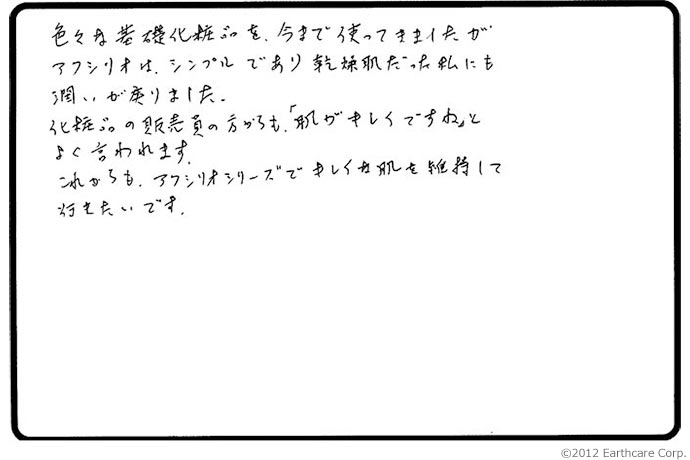 色々な基礎化粧品を、今まで使ってきましたが
アクシリオは、シンプルであり乾燥肌だった私にも
潤いが戻りました。
化粧品の販売員の方からも、「肌がキレイですね」と
よく言われます。
これからも、アクシリオシリーズでキレイな肌を維持して
行きたいです。
©2012 Earthcare Corp.